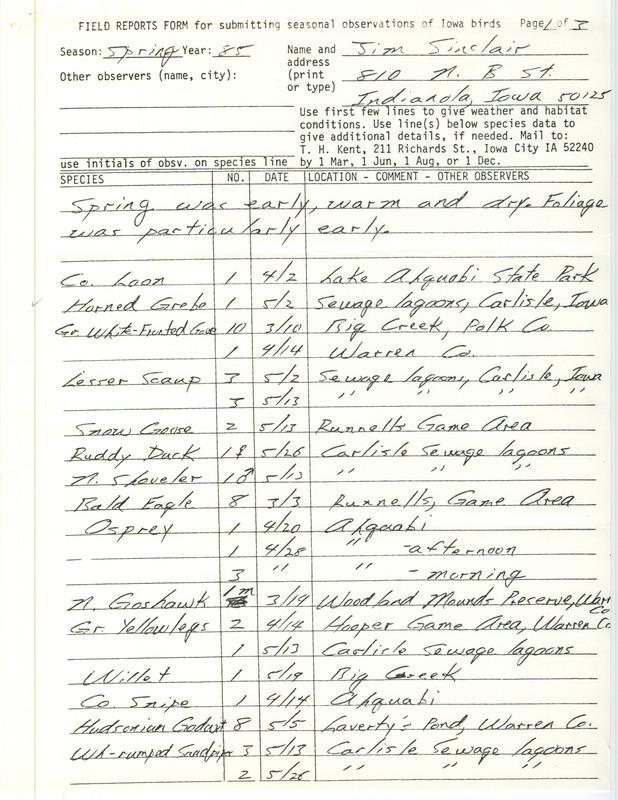 FIELD REPORTS FORM for submitting seasonal observations of Iowa birds Page 1 of 3
Season: Spring Year: 85 Name and Jim Sinclair
Other observers (name, city): address 810 N. B St.
(print
or type) Indianola, Iowa 50125
Use first few lines to give weather and habitat
conditions. Use line(s) below species data to
give additional details, if needed. Mail to:
T. H. Kent, 211 Richards St., Iowa City IA 52240
use initials of obsv. on species line by 1 Mar, 1 Jun, 1 Aug, or 1 Dec.
SPECIES NO. DATE LOCATION - COMMENT - OTHER OBSERVERS
Spring was early, warm and dry. Foliage
was particularly early.
Co. Loon 1 4/2 Lake Ahquabi State Park
Horned Grebe 1 5/2 Sewage lagoons, Carlisle, Iowa
Gr. White-Fronted Goose 10 3/10 Big Creek, Polk Co.
1 4/14 Warren Co.
Lesser Scaup 3 5/2 Sewage lagoons, Carlisle, Iowa
3 5/13 " " "
Snow Goose 2 5/13 Runnells Game Area
Ruddy Duck 1♀ 5/26 Carlisle Sewage lagoons
N. Shoveler 1♂ 5/13 " " "
Bald Eagle 8 3/3 Runnells, Game Area
Osprey 1 4/20 Ahquabi
1 4/28 " -afternoon
3 " " - morning
N. Goshawk 1 m 3/19 Woodland Mounds Preserve, Warr Co
Gr. Yellowlegs 2 4/14 Hooper Game Area, Warren Co
1 5/13 Carlisle Sewage lagoons
Willet 1 5/19 Big Creek
Co. Snipe 1 4/14 Ahquabi
Hudsonian Godwit 8 5/5 Laverty's Pond, Warren Co.
Wh-rumped Sandpiper 3 5/13 Carlisle Sewage lagoons
2 5/26 " " "